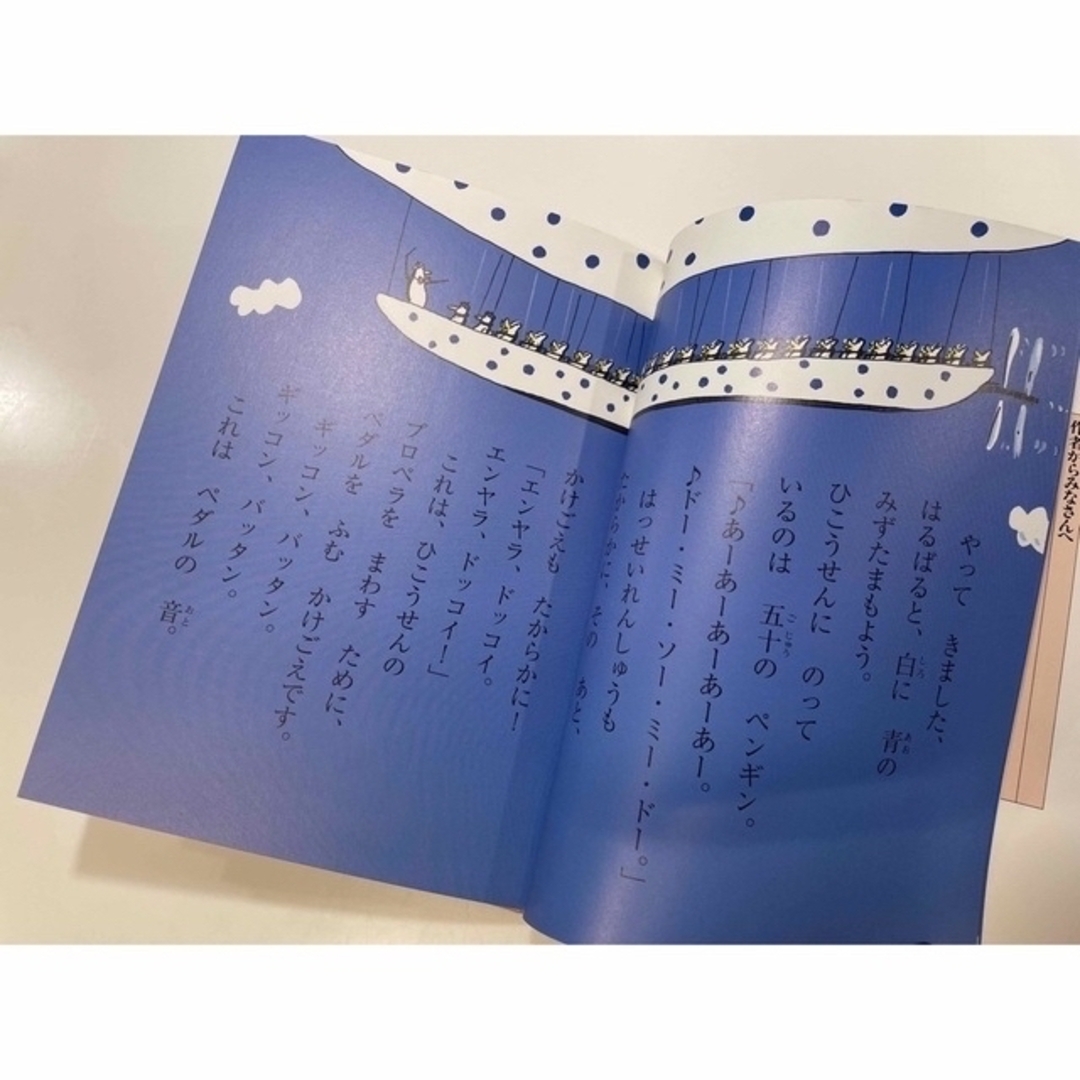 やって きました、
はるばると、白に 青の
みずたまもよう。
ひこうせんに のって
いるのは 五十の ペンギン。
「♪あーあーあーあーあー。
♪ドー・ミー・ソー・ミー・ドー。」
はっせいれんしゅうも
たからかに、その あと、
かけごえも たからかに!
「エンヤラ、ドッコイ。
エンヤラ、ドッコイ!」
これは、ひこうせんの
プロペラを まわす ために、
ペダルを ふむ かけごえです。
ギッコン、バッタン。
ギッコン、バッタン。
これは ペダルの 音。
しろ
あお
ごじゅう
おと
作者からみなさんへ